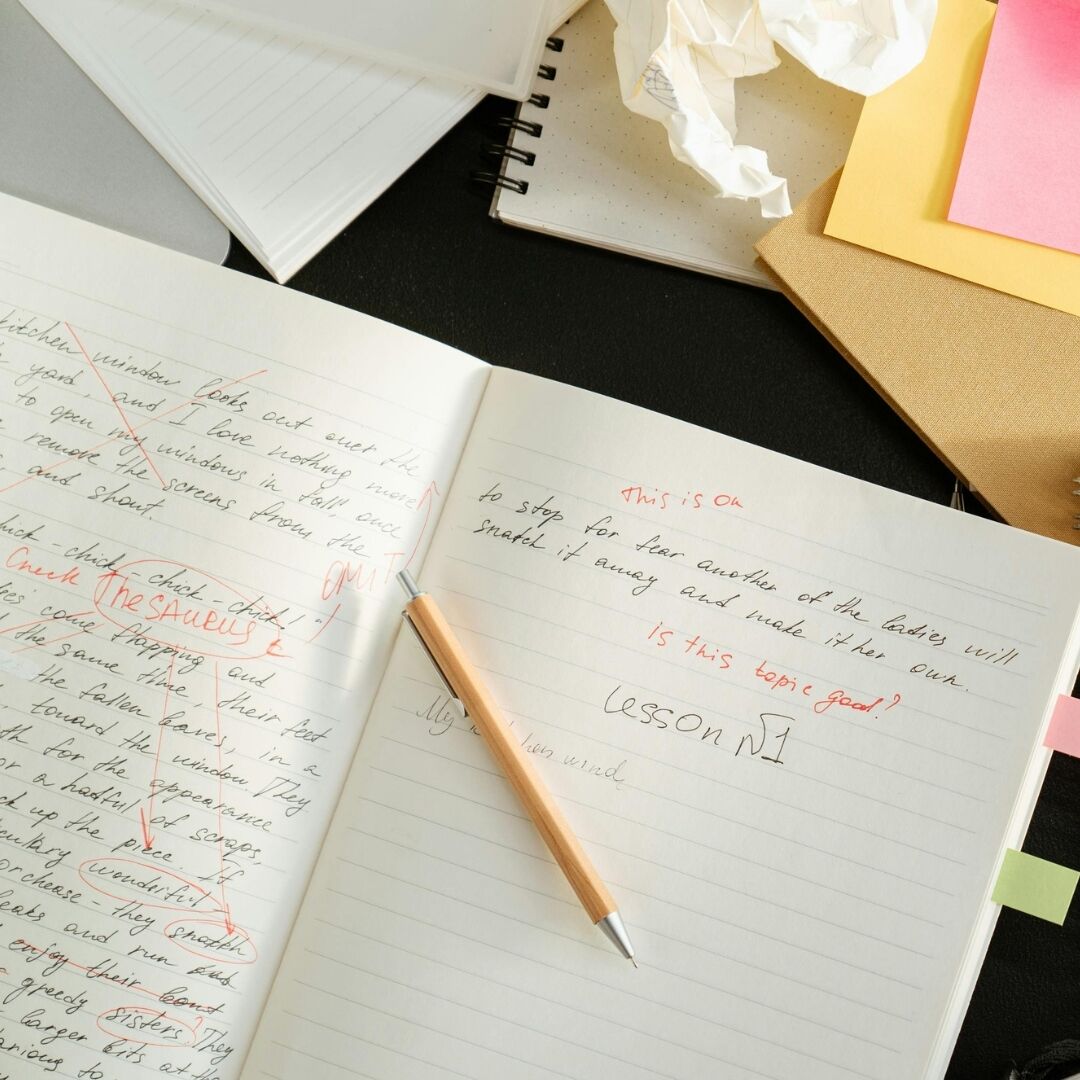 kitchen window looks out over the
yard, and I love nothing more
to open my windows in fall, once
remove the screens from the
and shout.
OMIT
chick-chick-chick!
Check THESAURUS
come flapping and
the same time, their feet
the fallen leaves, in a
toward the window. They
for the appearance
or a hatful of scraps,
up the piece. If
wonderful
they snatch
and run
enjoy their
greedy sisters? They
larger bits at the
to
This is Ok
to stop for fear another of the ladies will
snatch it away and make it her own.
is this topic good?
Lesson №1
My
wind